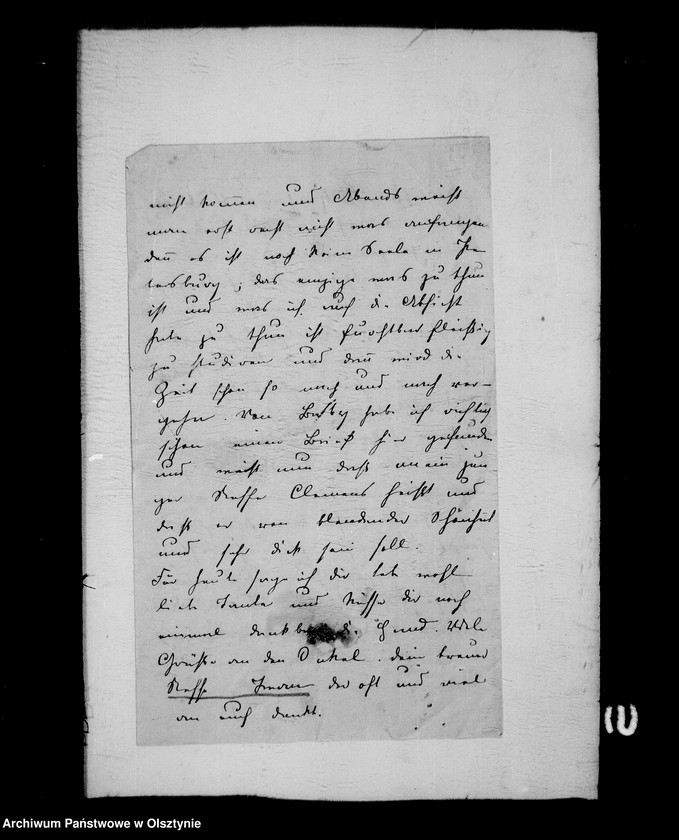 nicht kommen und Abends weiß
man erst recht nicht was anfangen
den̄ es ist noch keine Seele in Pe-
tersburg, das einzige was zu thun
ist und was ich auch die Absicht
habe zu thun ist furchtbar fleißig
zu studiren und dan̄ wird die
Zeit schon so nach und nach ver-
gehn. Von habe ich richtig
schon einen Brief hier gefunden
und weiß nun daß mein jun
ger Neffe Clemens heißt und
daß er von blendender Schönheit
und sehr dick sein soll.
Für heute sage ich dir lebe wohl
liebe Tante und küsse dir noch
einmal dankbar die Hand. Viele
Grüße an den Onkel. dein treuer
Neffe der oft und viel
an euch denkt.
Archiwum Państwowe w Olsztynie